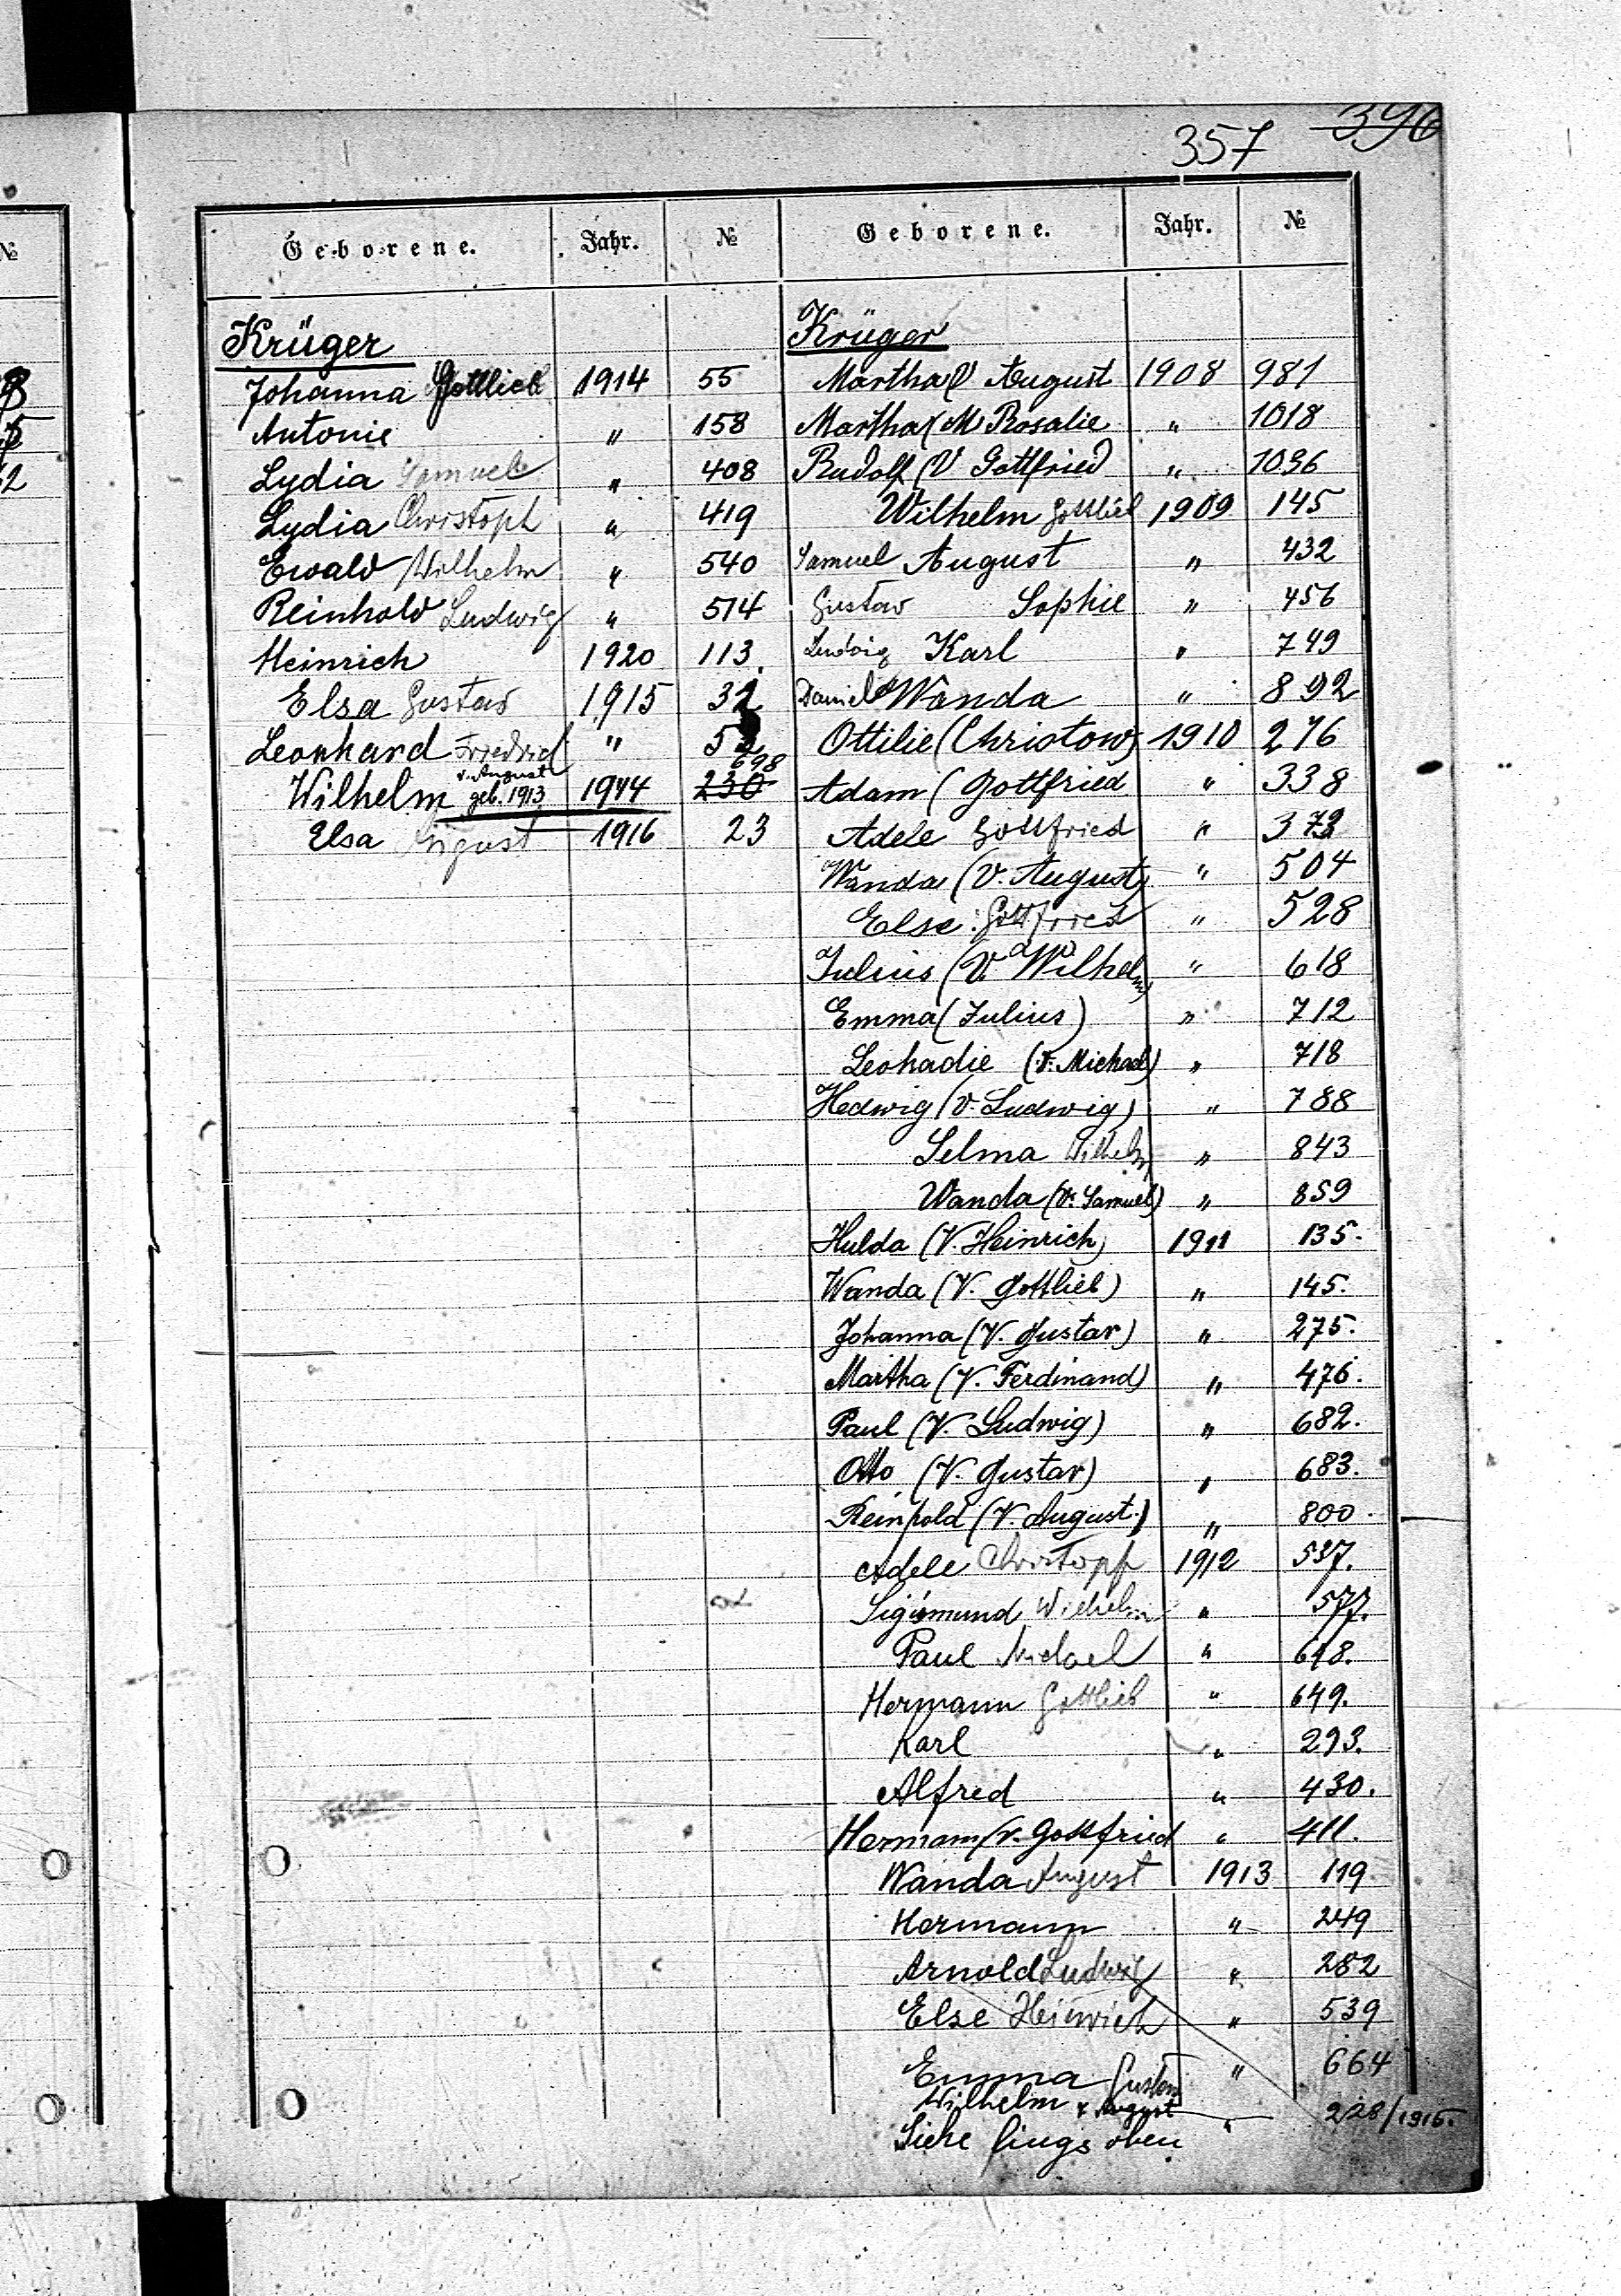 357 396
Geborene. Jahr. №
Krüger
Johanna Gottlieb 1914 55
Antonie " 158
Lydia Samuel " 408
Lydia Christoph " 419
Ewald Wilhelm " 540
Reinhold Ludwig " 514
Heinrich 1920 113.
Elsa Gustav 1915 32
Leonhard Friedrich "
698
Wilhelm v. August geb. 1913 1944 230
Elsa August 1916 23
Geborene. Jahr. №
Krüger
Martha (V August 1908 981
Martha (M Rosalie " 1018
Rudolf (V Gottfried " 1036
Wilhelm Gottlieb 1909 145
Samuel August " 432
Gustav Sophie " 456
Ludwig Karl " 749
Daniel Wanda " 892
Ottilie (Christow) 1910 276
Adam (Gottfried " 338
Adele Gottfried " 373
Wanda (V. August) " 504
Else Gottfried " 528
Julius (V. Wilhelm) " 618
Emma (Julius) " 712
Leohadie (V. Michael) " 718
Hedwig (V. Ludwig) " 788
Selma Wilhelm " 843
Wanda (V. Samuel) " 859
Hulda (V. Heinrich) 1911 135.
Wanda (V. Gottlieb) " 145.
Johanna (V. Gustav) " 275.
Martha (V. Ferdinand) " 476.
Paul (V. Ludwig) " 682.
Otto (V. Gustav) " 683.
Reinhold (V. August.) " 800.
Adele Christoph 1912 537.
Sigismund Wilhelm " 577.
Paul Michael " 648.
Hermann Gottlieb " 649.
Karl " 293.
Alfred " 430.
Hermann (V. Gottfried " 411.
Wanda August 1913 119.
Hermann " 249
Arnold Ludwig " 282
Else Heinrich " 539
Emma Gustav " 664
Wilhelm v August " 228/1915.
Siehe lings oben